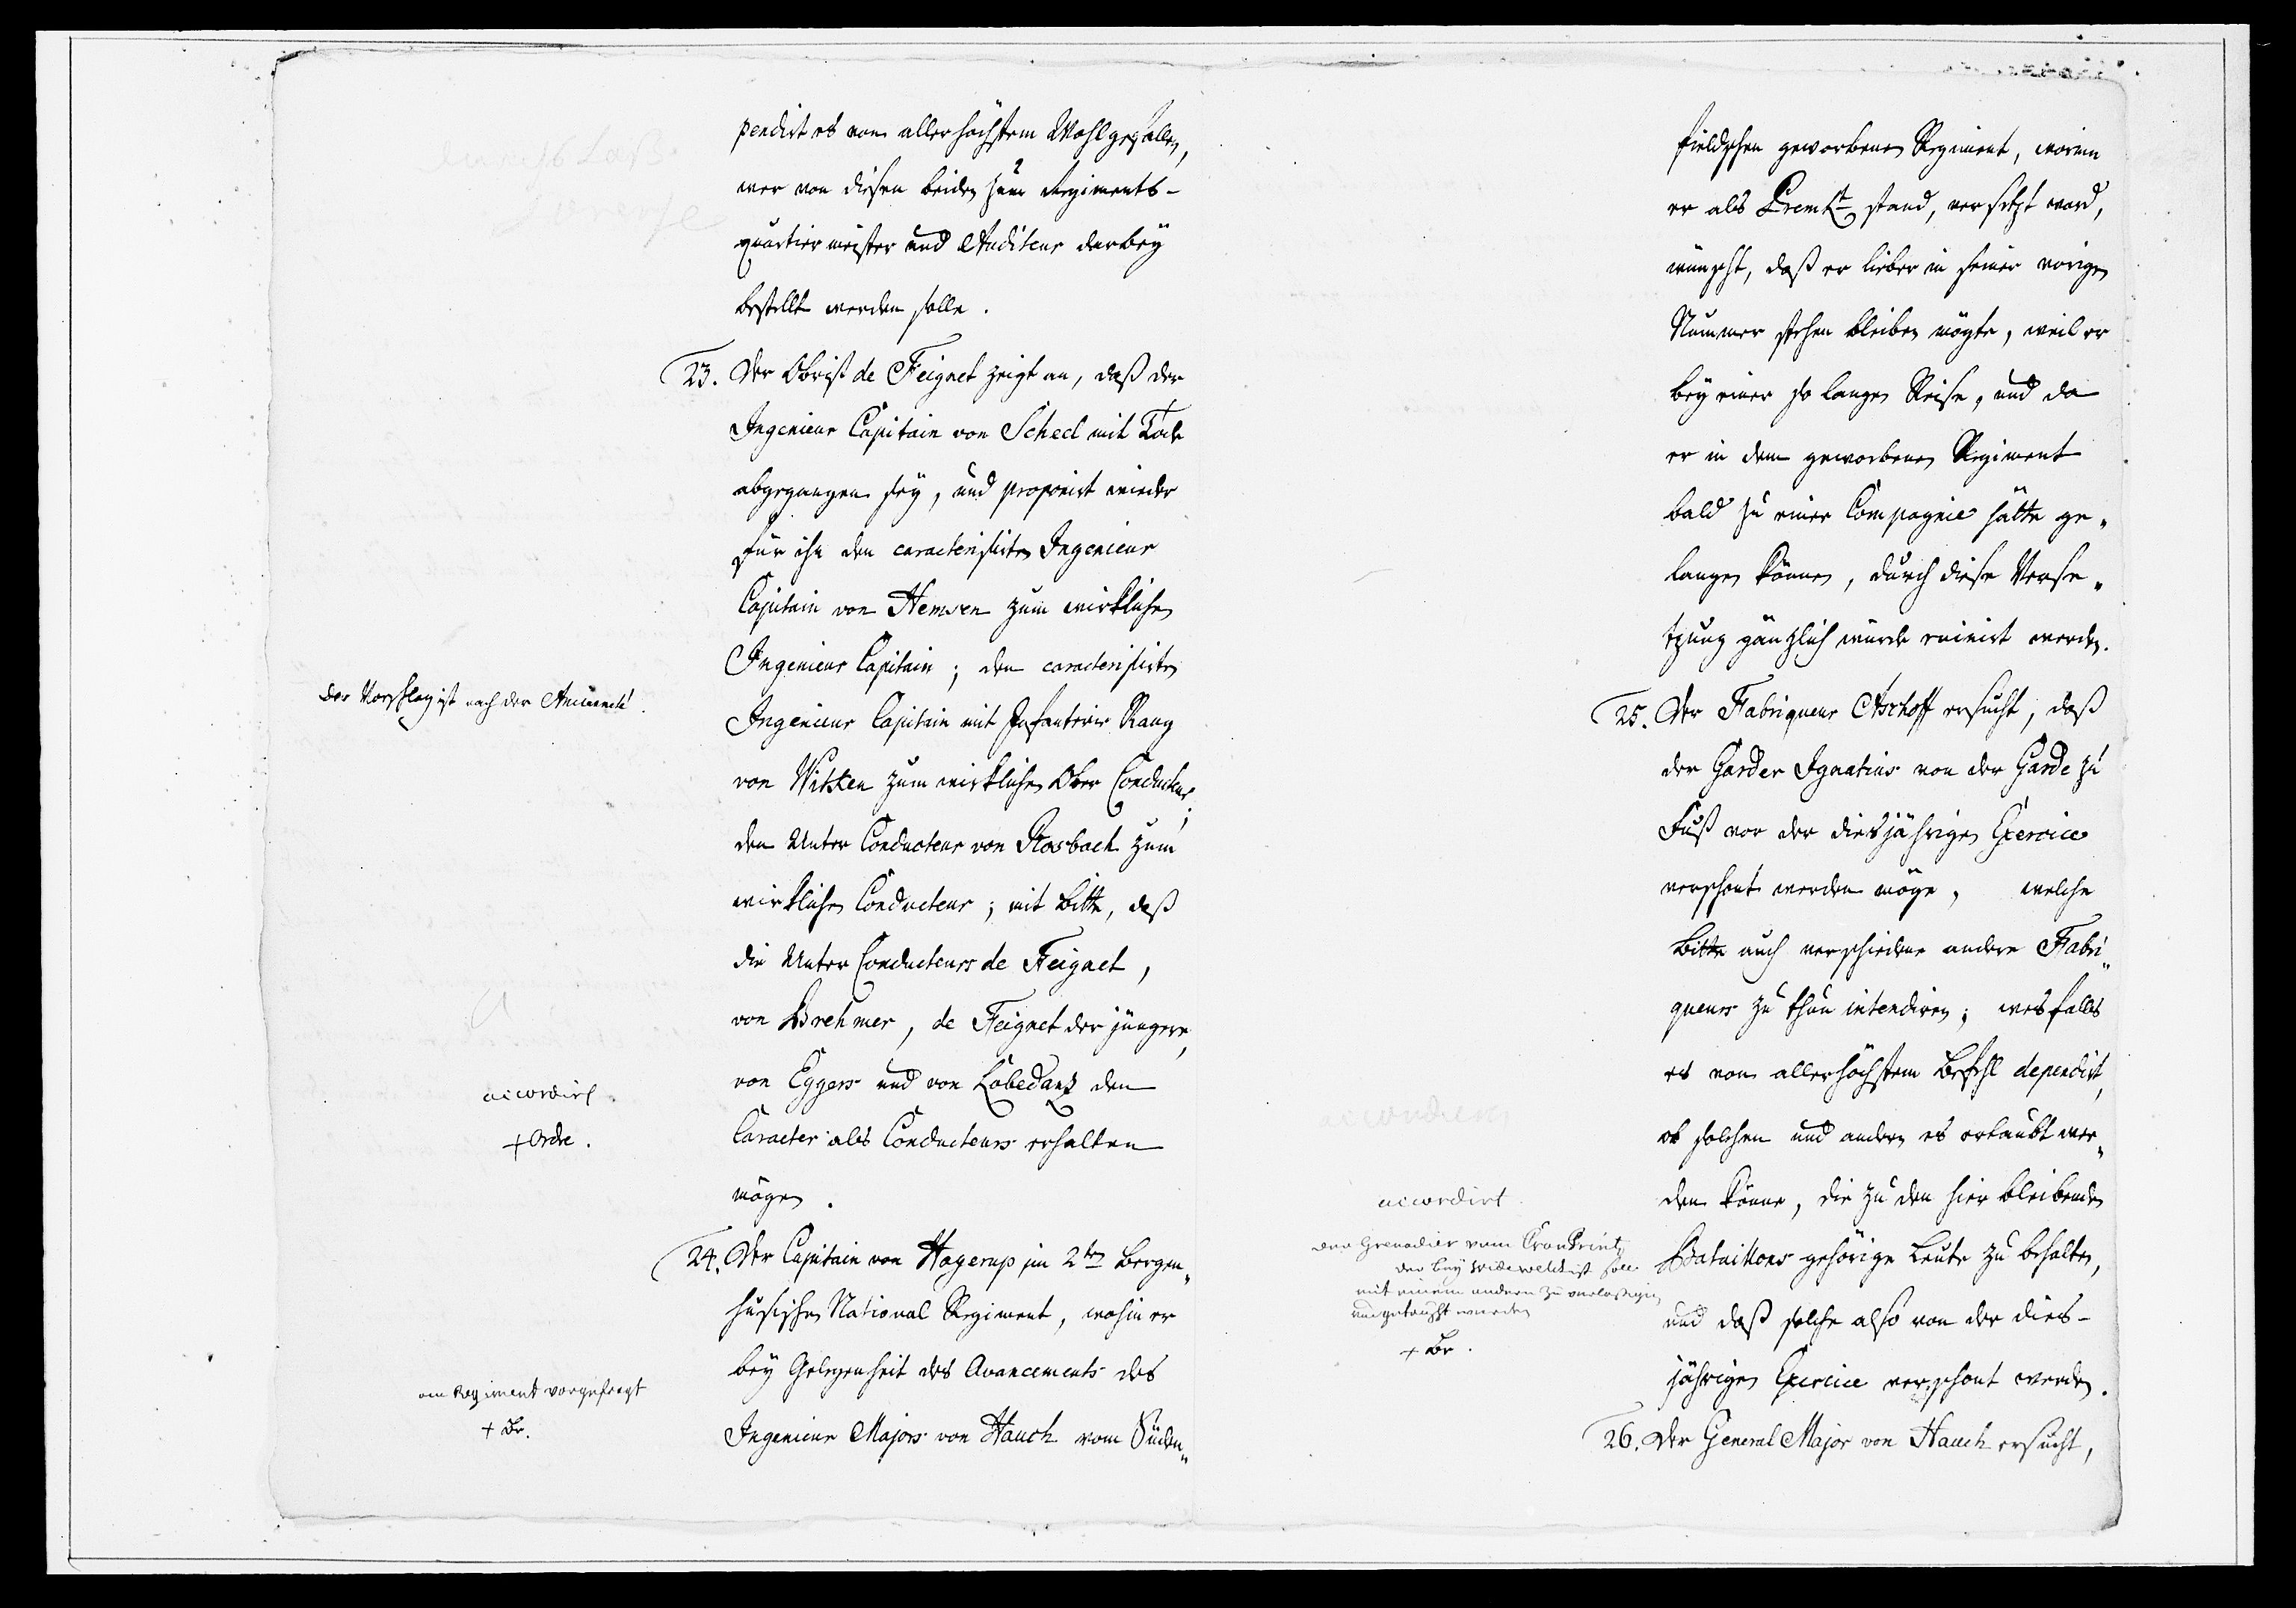 pendirt es vom allerhöchstem Wohlgefallen,
wer von diesen beiden zum Regiments-
quartiermeister und Auditeur darbey
bestellt werden solle.
23. Der Obrist de Feignet zeigt an, daß der
Ingenieur Capitain von Scheel mit Tode
abgegangen sey, und proponirt wieder
für ihn den caracterisirten Ingenieur
Capitain von Hemsen zum wirklichen
Ingenieur Capitain; den caracterisirten
Der Vorschlag ist nach der Ancienneté.
Ingenieur Capitain mit Infanterie Rang
von Witken zum wirklichen Ober Conducteur;
den Unter Conducteur von Rosbach zum
wirklichen Conducteur; mit Bitte, daß
die Unter Conducteurs de Feignet,
von Brehmer, de Feignet der jüngere,
von Eggers und von Lobedantz den
accordirt.
Caracter als Conducteurs erhalten
+ Ordre.
mögen.
24. Der Capitain von Hagerup im 2ten Bergen„
husischen National Regiment, wohin er
bey Gelegenheit des Avancements des
am Regiment vorgefragt
+ Br.
Ingenieur Majors von Hauch vom Süden„
fieldschen geworbenen Regiment, worinn
er als PremLt stand, versetzt ward,
wünscht, daß er lieber in seiner vorigen
Nummer stehen bleiben mögte, weil er
bey einer so langen Reise, und da
er in dem geworbenen Regiment
bald zu einer Compagnie hätte ge„
langen können, durch diese Verse„
tzung gänzlich würde ruinirt werden.
25. Der Fabriqueur Aschoff ersucht, daß
der Garder Ignatius von der Garde zu
Fuß vor der diesjährigen Exercice
verschont werden möge, welche
Bitte auch verschiedene andere Fabri„
queurs zu thun intendiren; wesfalls
es von allerhöchstem Befehl dependirt,
ob solchen und andern es erlaubt wer„
den könne, die zu den hier bleibenden
Bataillons gehörige Leute zu behalten,
und daß solche also von der dies-
jährigen Exercice verschont werden.
accordirt.
der Grenadier vom CronPrintz
der bey ist soll
mit einem andern zuverlaßigen
umgetauscht werden
+ Br.
26. Der General Major von Hauch ersucht,